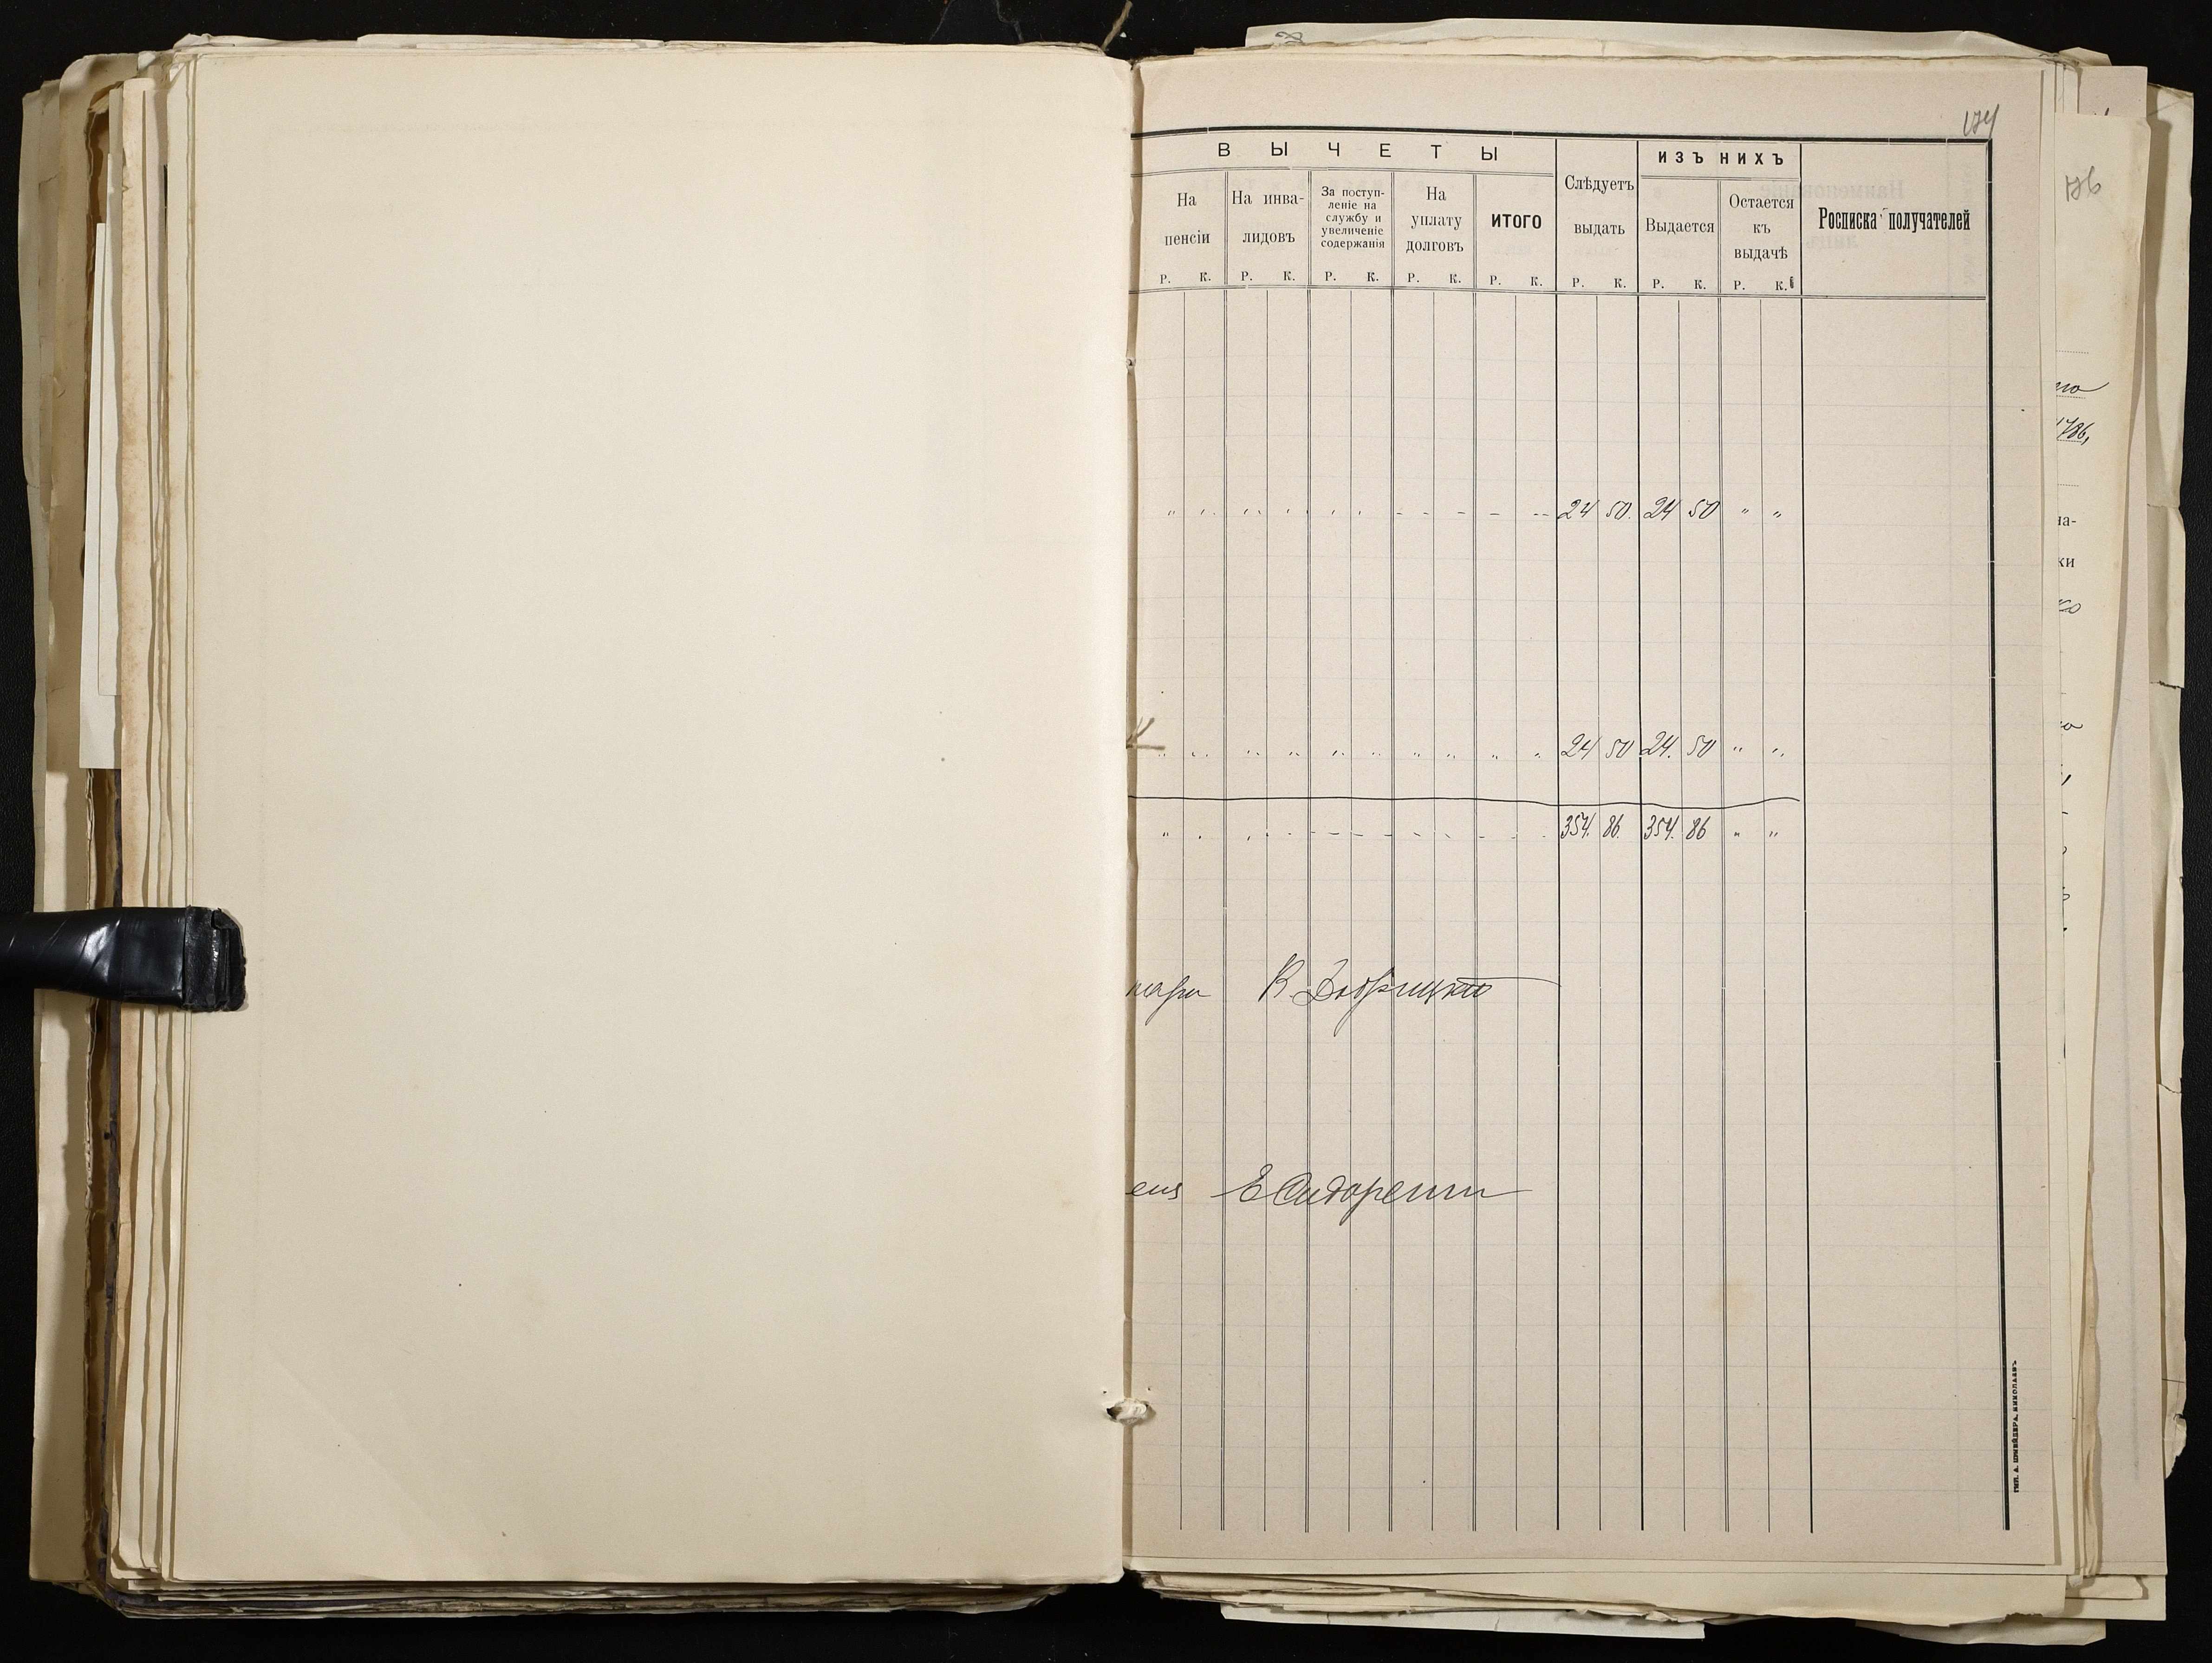 ВЫЧЕТЫ
ИЗЪ НИХЪ
На пенсіи
На инва-
лидовъ
За поступ-
леніе на
службу и
увеличеніе
содержанія
На
уплату
долговъ
ИТОГО
Слѣдуетъ
выдать
Выдается
Остается
къ
выдачѣ
Росписка получателей
Р. К. Р. К. Р. К. Р. К. Р. К. Р. К. Р. К. Р. К.
" " " " " " - - - - 24 50. 24 50 " "
" " " " " " " " " " 24 50 24. 50 " "
" " " - - - - - - - 354. 86. 354. 86 " "
Е Сидоренко
ТИП. А. ШНЕЙДЕРА, НИКОЛАЕВЪ
186
на-
ки